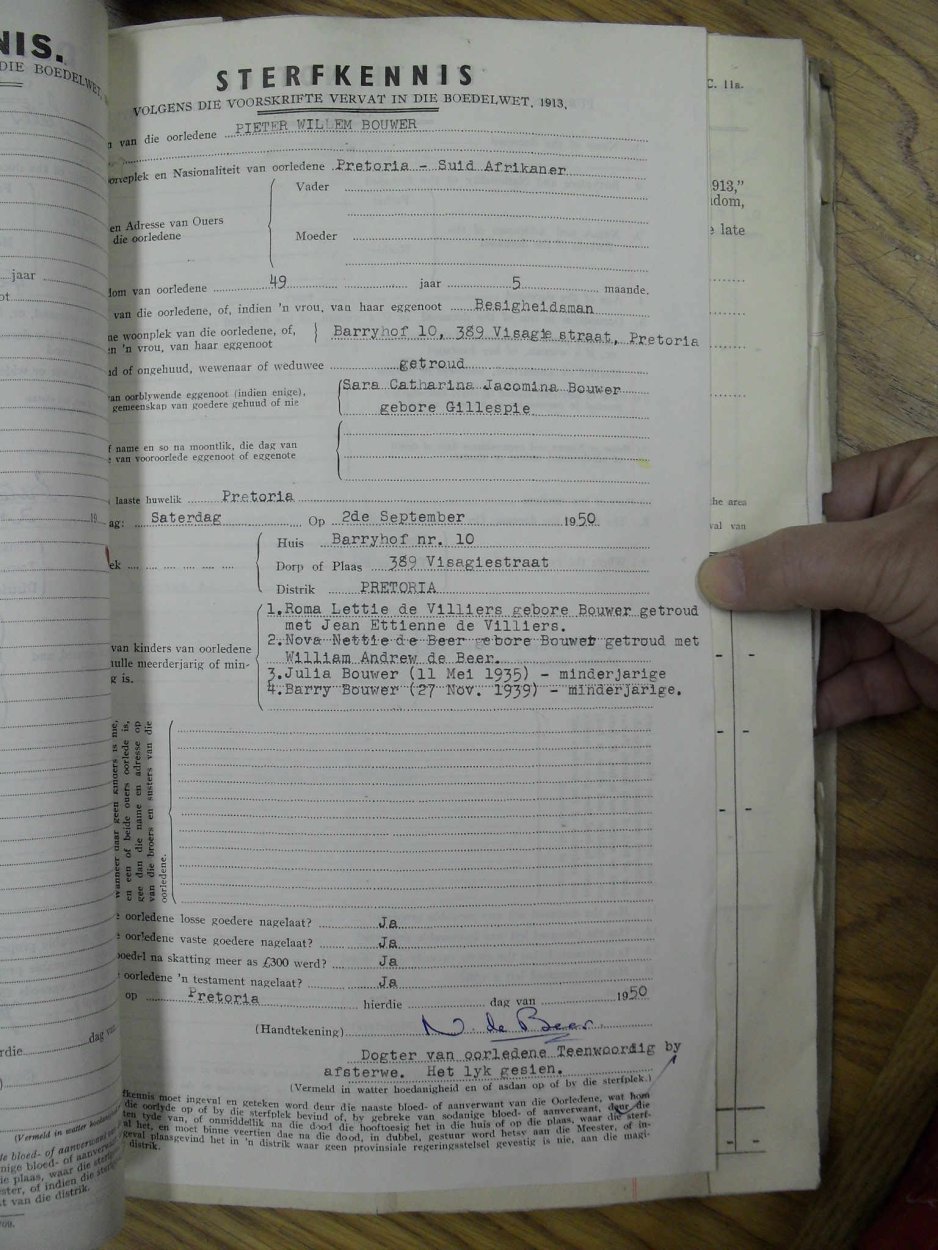 NIS.
DIE BOEDELWET,
jaar
19
dag van
C. 11B.
1913,"
late
the area
val van
STERFKENNIS
VOLGENS DIE VOORSKRIFTE VERVAT IN DIE BOEDELWET, 1913.
van die oorledene PIETER WILLEM BOUWER
en Nasionaliteit van oorledene Pretoria - Suid Afrikaner
Vader
en Adresse van Ouers
die oorledene
Moeder
van oorledene 49 jaar 5 maande.
van die oorledene, of, indien 'n vrou, van haar eggenoot Besigheidsman
woonplek van die oorledene, of,
'n vrou, van haar eggenoot
Barryhof 10, 389 Visagie straat, Pretoria
of ongehuud, wewenaar of weduwee getroud
van oorblywende eggenoot (indien enige),
gemeenskap van goedere gehuud of nie
Sara Catharina Jacomina Bouwer
gebore Gillespie
name en so na moontlik, die dag van
van vooroorlede eggenoot of eggenote
laaste huwelik Pretoria
Saterdag Op 2de September 1950
Huis Barryhof nr. 10
Dorp of Plaas 389 Visagiestraat
Distrik PRETORIA
van kinders van oorledene
hulle meerderjarig of min-
is.
1. Roma Lettie de Villiers gebore Bouwer getroud
met Jean Ettienne de Villiers.
2. Nova Nettie de Beer gebore Bouwer getroud met
William Andrew de Beer.
3. Julia Bouwer (11 Mei 1935) - minderjarige
4. Barry Bouwer (27 Nov. 1939) - minderjarige.
wanneer daar geen kinders is nie,
en een of beide ouers oorlede is,
gee dan die name en adresse op
van die broers en susters van die
oorledene.
oorledene losse goedere nagelaat? Ja
oorledene vaste goedere nagelaat? Ja
boedel na skatting meer as £300 werd? Ja
oorledene 'n testament nagelaat? Ja
op Pretoria hierdie dag van 1950
(Handtekening) N. de Beer
Dogter van oorledene Teenwoordig by
afsterwe. Het lyk gesien.
(Vermeld in watter hoedanigheid en of asdan op of by die sterfplek.)
moet ingeval en geteken word deur die naaste bloed- of aanverwant van die Oorledene, wat hom
die oorlyde op of by die sterfplek bevind of, by gebreke van sodanige bloed- of aanverwant, deur die
tyde van, of onmiddellik na die dood die hooftoesig het in die huis of op die plaas, waar die sterf-
val het, en moet binne veertien dae na die dood, in dubbel, gestuur word hetsy aan die Meester, of in-
geval plaasgevind het in 'n distrik waar geen provinsiale regeringsstelsel gevestig is nie, aan die magi-
distrik.